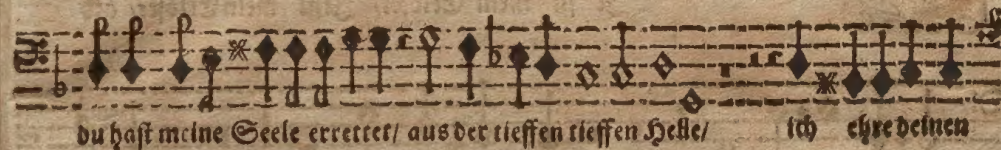 du hast meine Seele errettet/ aus der tieffen tieffen Helle/ ich ehre deinen